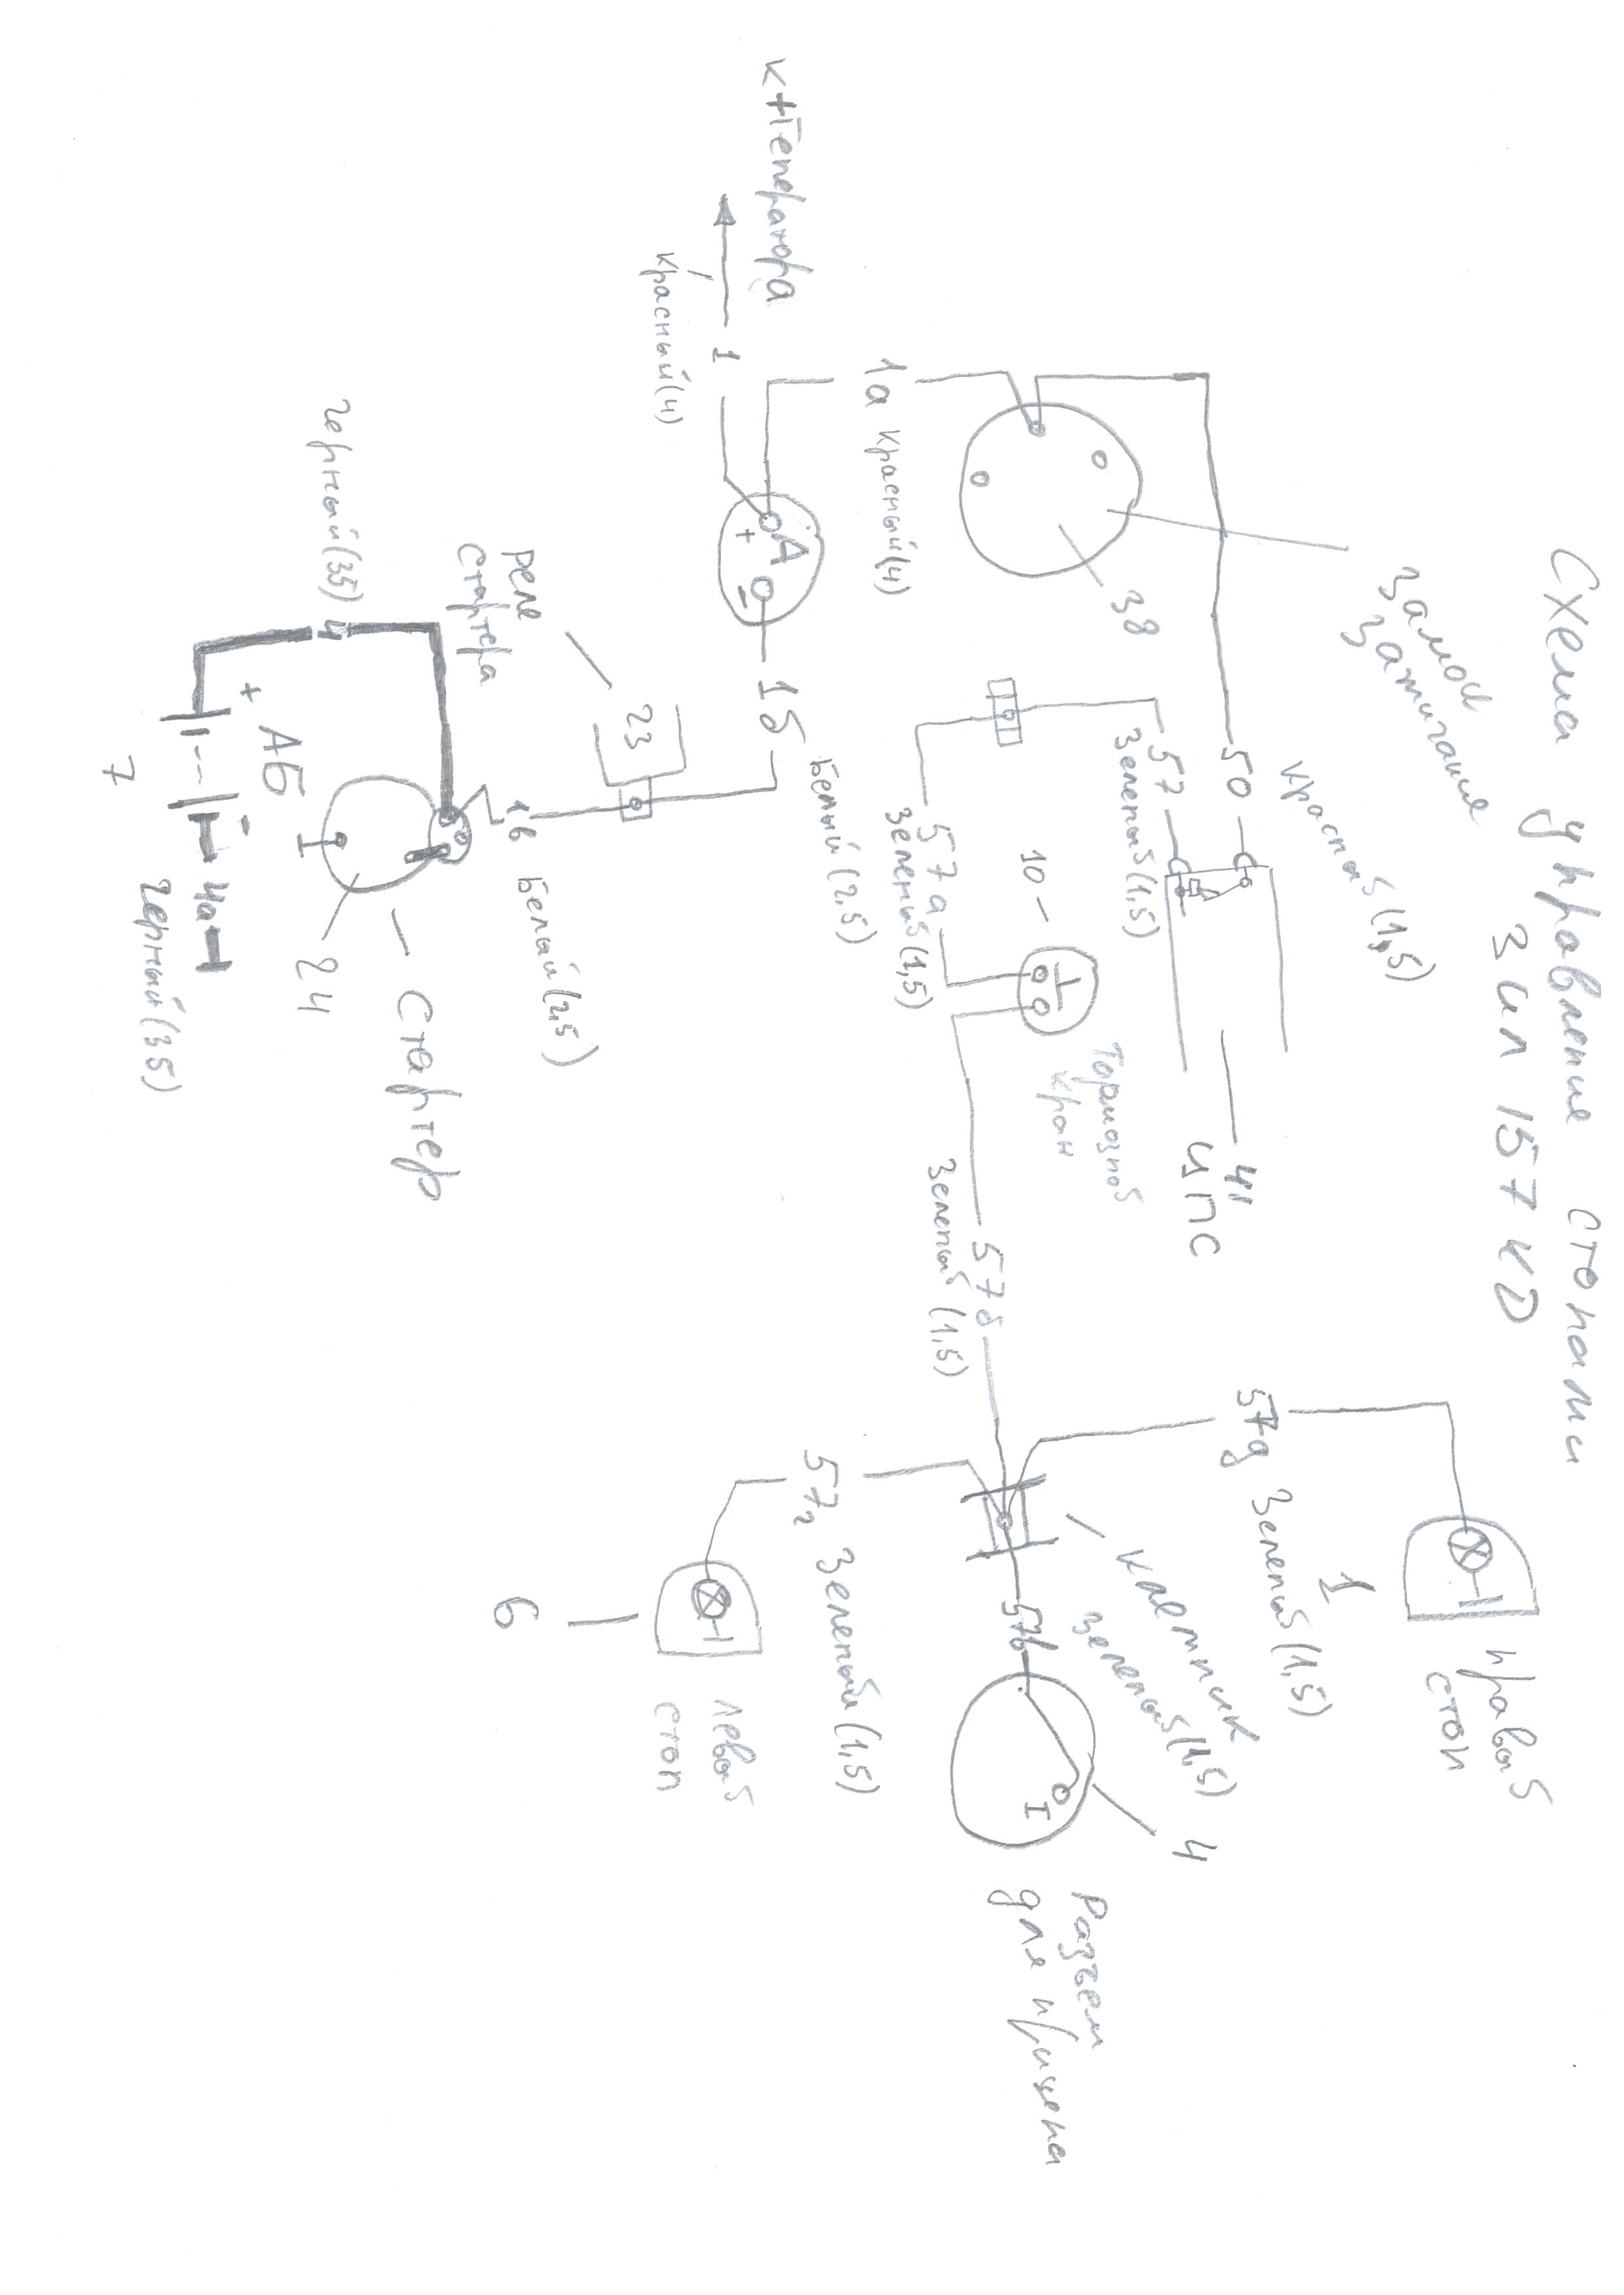 Схема управление стопами
Зил 157 КД
Замок
зажигание
38
1а красный (4)
К + Генератора
1
красный (4)
А
+
–
1б
Белый (2,5)
50
красный (1,5)
57
Зеленый (1,5)
41
ЦПС
57а
Зеленый (1,5)
10
Тормозной
кран
57б
Зеленый (1,5)
57д Зеленый (1,5)
1
Правый
стоп
клеммник
57в
Зеленый (1,5)
4
Разъем
для прицепа
57г Зеленый (1,5)
6
левый
стоп
реле
стартера
23
1в Белый (2,5)
Стартер
24
4
черный (35)
+ АБ -
7
4а
черный (35)